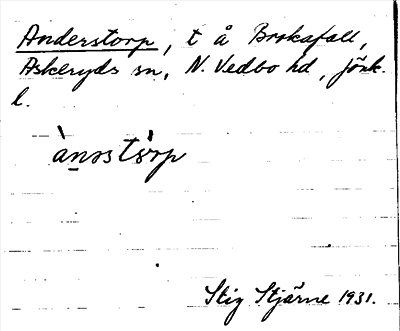 Anderstorp, t å Brokafall,
Askeryds sn, N. Vedbo hd, Jönk.
l.
ànəstòrp
Stig Stjärne 1931.